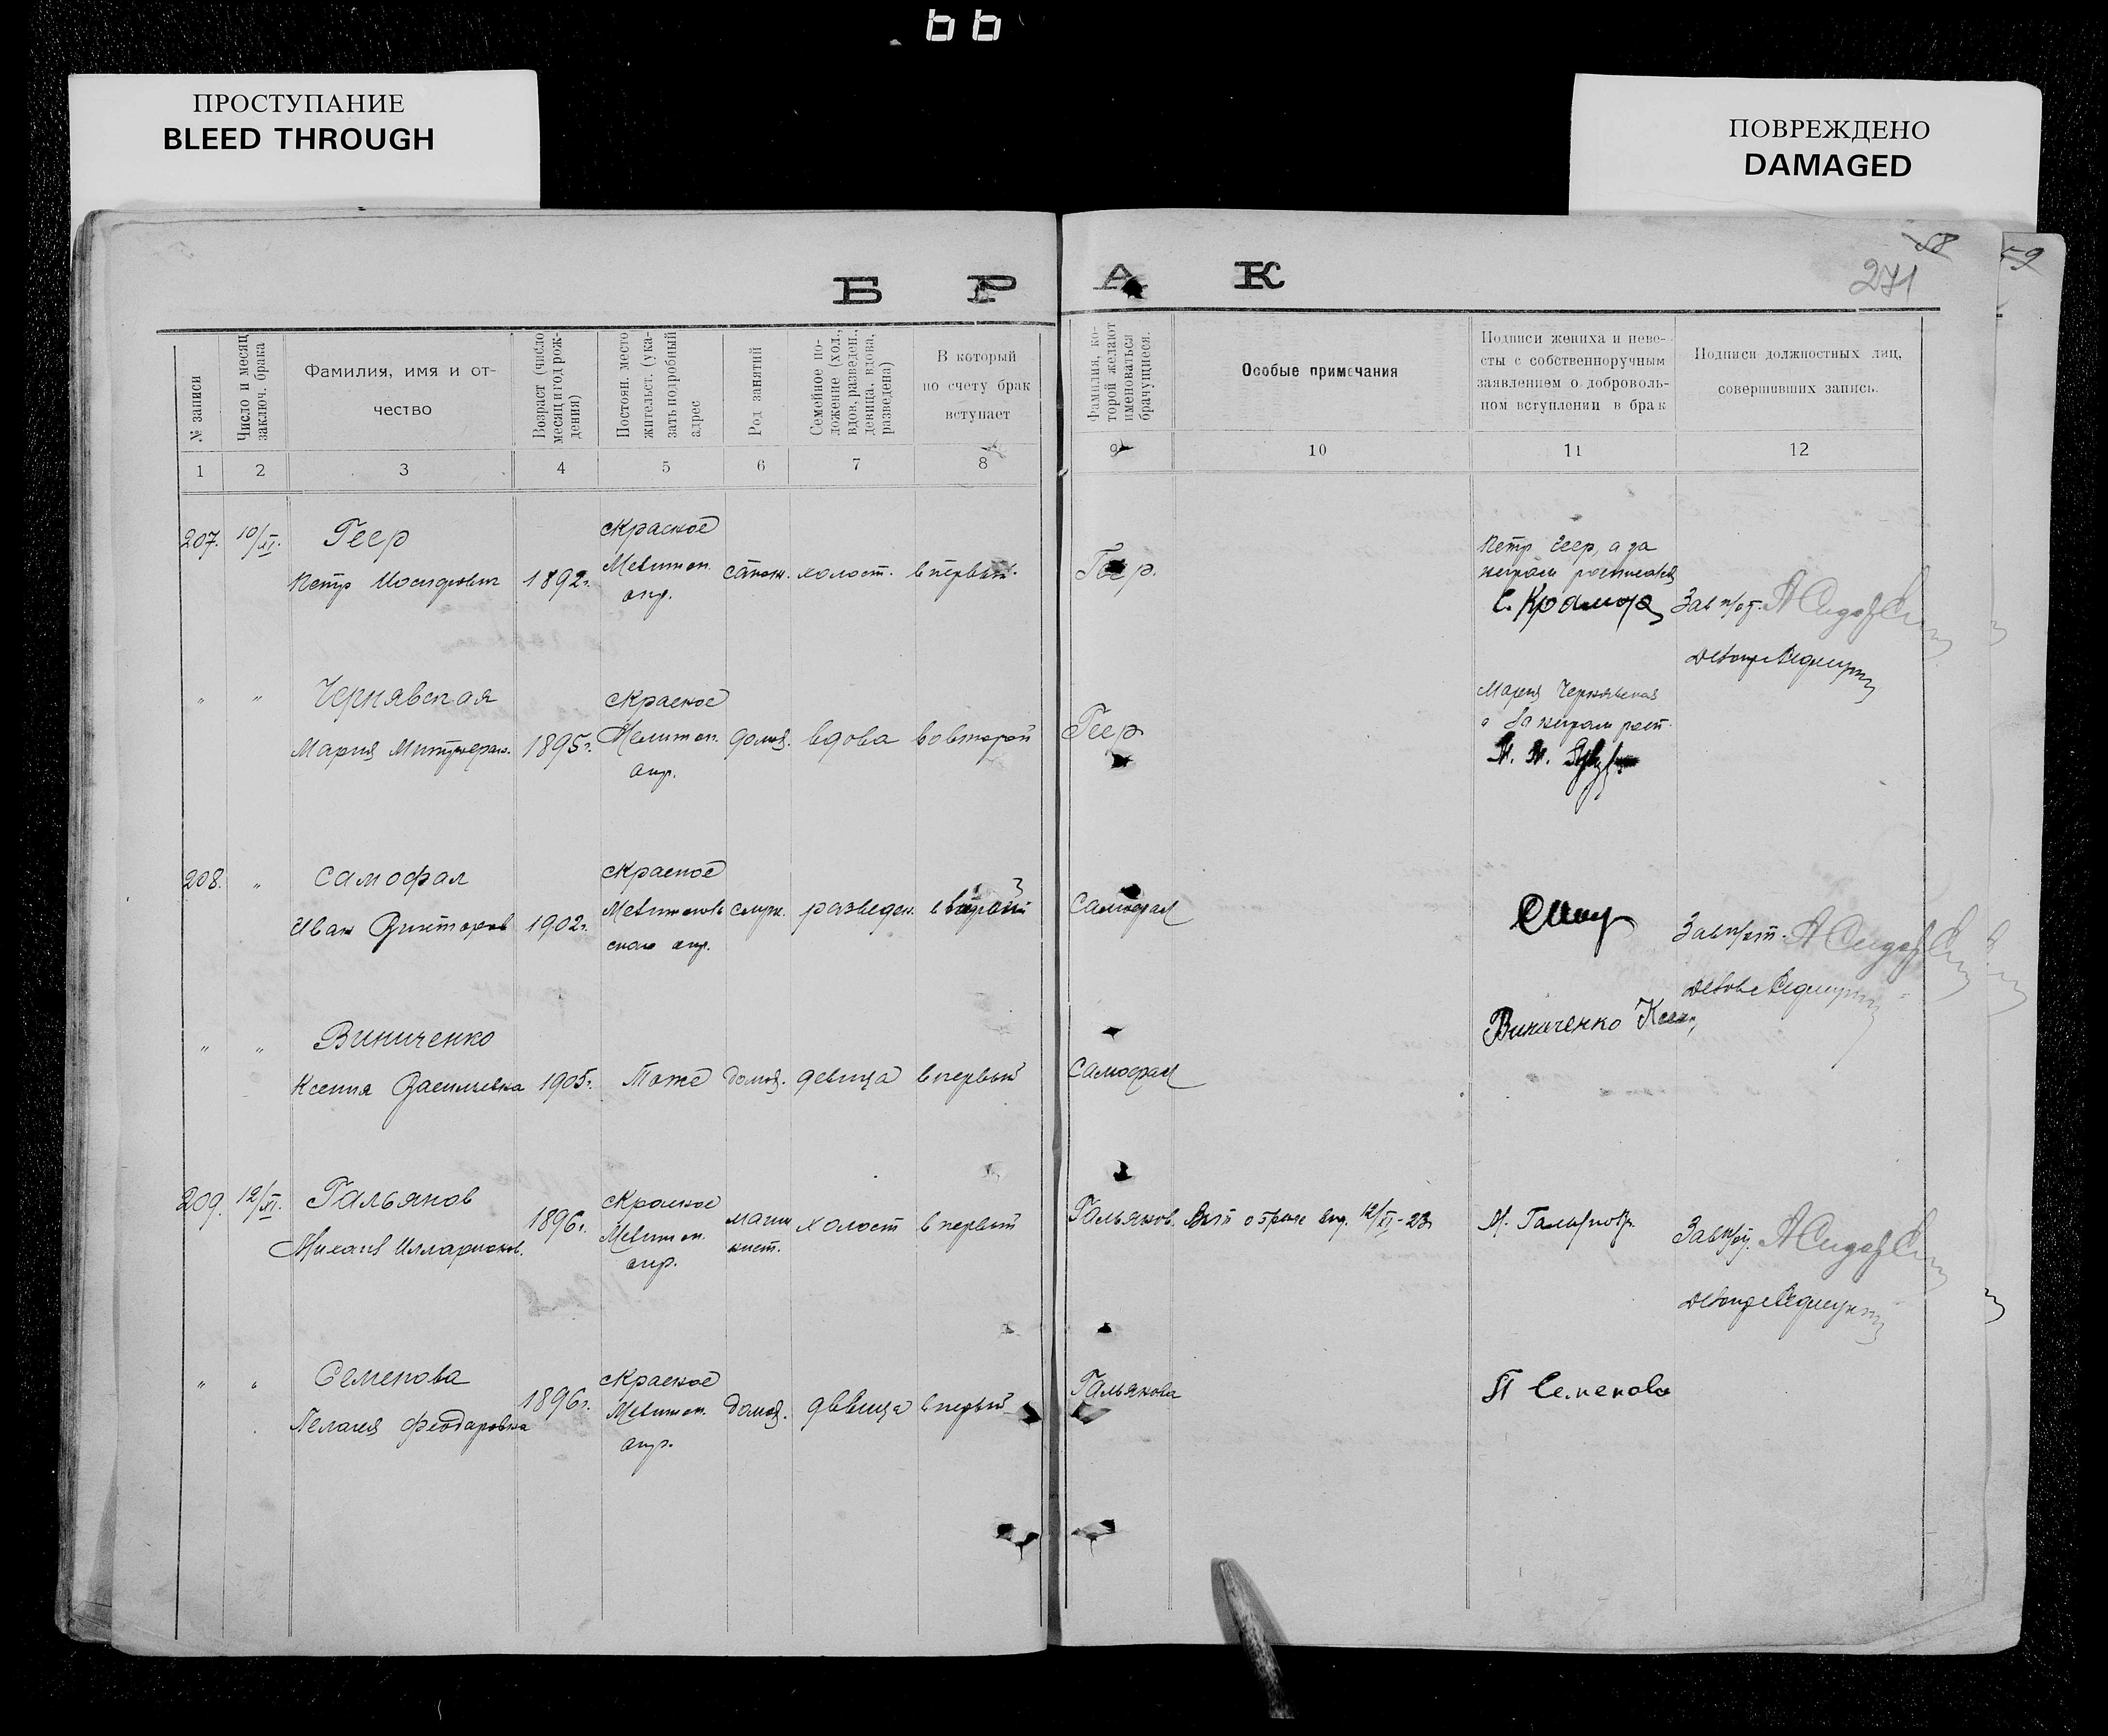 66
ПРОСТУПАНИЕ
BLEED THROUGH
ПОВРЕЖДЕНО
DAMAGED
58
59
271
БРАК
№ записи
Число и месяц
заключ. брака
Фамилия, имя и от-
чество
Возраст (число
месяц и год рож-
дения)
Постоян. место
жительст. (ука-
зать подробный
адрес
Род занятий
Семейное по-
ложение (хол.,
вдов, разведен.,
девица, вдова,
разведена)
В который
по счету брак
вступает
Фамилия, ко-
торой желают
именоваться
брачущиеся.
Особые примечания
Подписи жениха и неве-
сты с собственноручным
заявлением о доброволь-
ном вступлении в брак
Подписи должностных лиц,
совершивших запись.
1 2 3 4 5 6 7 8 9 10 11 12
207. 10/XI. Геер
Петр Иосифович 1892г.
с Красное
Мелитоп.
окр.
холост. в первый. Геер.
Петр Геер, а за
Завп/от.
" " Чернявская
Мария 1895г.
с Красное
Мелитоп.
окр.
домох. вдова во второй Геер
Мария Чернявская
208. " Самофал
Иван Викторов 1902г.
с Красное
Мелитополь
ского окр.
служ. разведен. Самофал
Завп/от.
" " Виниченко
Ксения Васильевна 1905г. Тоже домох. девица в первый Самофал
Виниченко
209. 12/XI. Гальянов
Михаил Илларионов. 1896г.
с Красное
Мелитоп.
окр.
машин
кист.
холост в первый Гальянов. 12/XI-23
М. Гальянов
" " Семенова
Пелагея Феодоровна 1896г.
с Красное
Мелитоп.
окр.
домох. девица в первый Гальянова
П Семенова